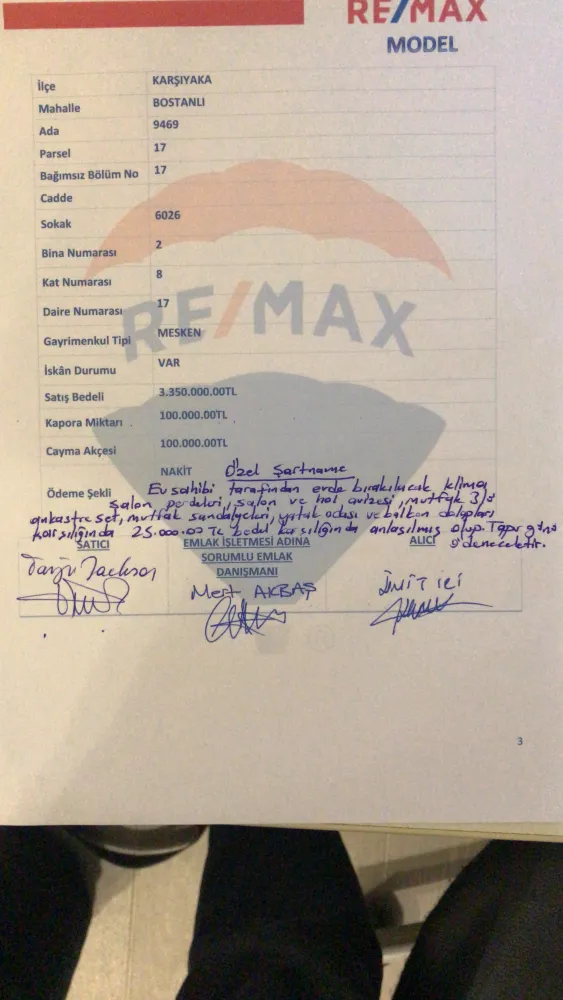 RE/MAX
MODEL
İlçe KARŞIYAKA
Mahalle BOSTANLI
Ada 9469
Parsel 17
Bağımsız Bölüm No 17
Cadde
Sokak 6026
Bina Numarası 2
Kat Numarası 8
Daire Numarası 17
RE/MAX
Gayrimenkul Tipi MESKEN
İskân Durumu VAR
Satış Bedeli 3.350.000.00TL
Kapora Miktarı 100.000.00TL
Cayma Akçesi 100.000.00TL
NAKİT Özel Şartname
Ödeme Şekli Ev sahibi tarafından evde bırakılacak klima
Salon perdeleri, salon ve hol avizesi, mutfak 3'lü
ankastre set, mutfak sandalyeleri, yatak odası ve balkon dolapları
karşılığında 25.000.00 TL bedel karşılığında anlaşılmış olup. Tapu günü
ödenecektir.
SATICI EMLAK İŞLETMESİ ADINA ALICI
SORUMLU EMLAK
DANIŞMANI
Jackson Mert AKBAŞ ÜMİT
3